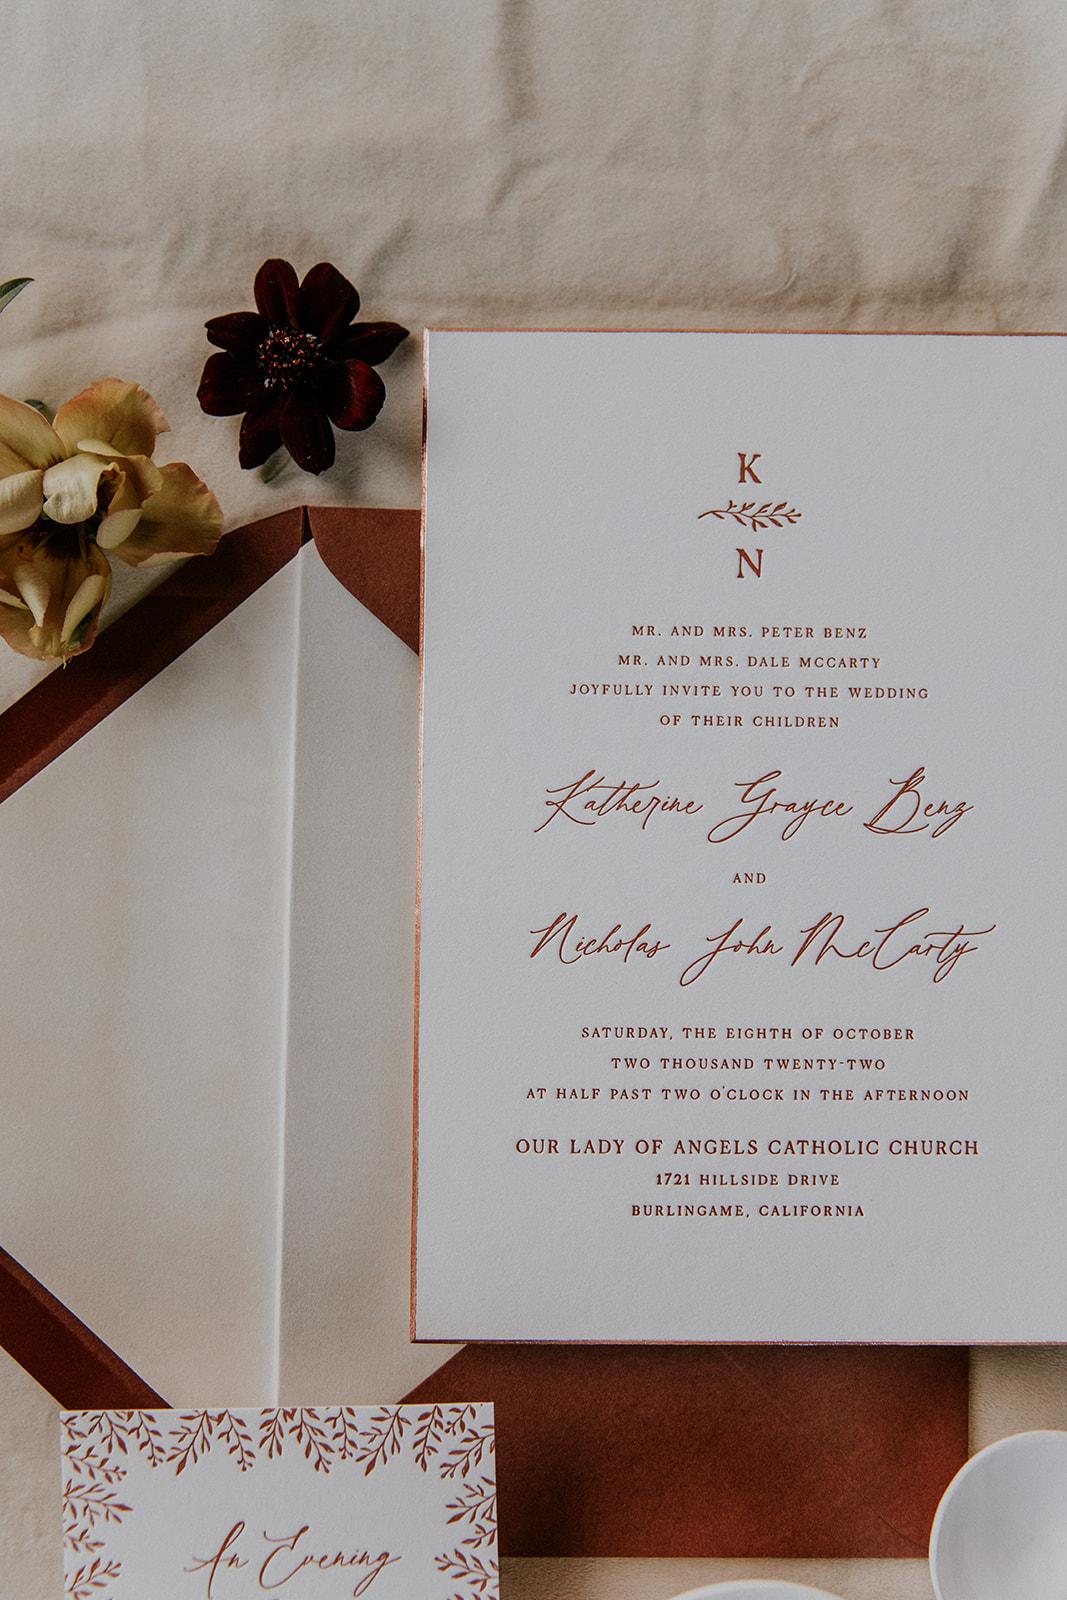 K
N
MR. AND MRS. PETER BENZ
MR. AND MRS. DALE MCCARTY
JOYFULLY INVITE YOU TO THE WEDDING
OF THEIR CHILDREN
Katherine Grayce Benz
AND
Nicholas John McCarty
SATURDAY, THE EIGHTH OF OCTOBER
TWO THOUSAND TWENTY-TWO
AT HALF PAST TWO O'CLOCK IN THE AFTERNOON
OUR LADY OF ANGELS CATHOLIC CHURCH
1721 HILLSIDE DRIVE
BURLINGAME, CALIFORNIA
An Evening